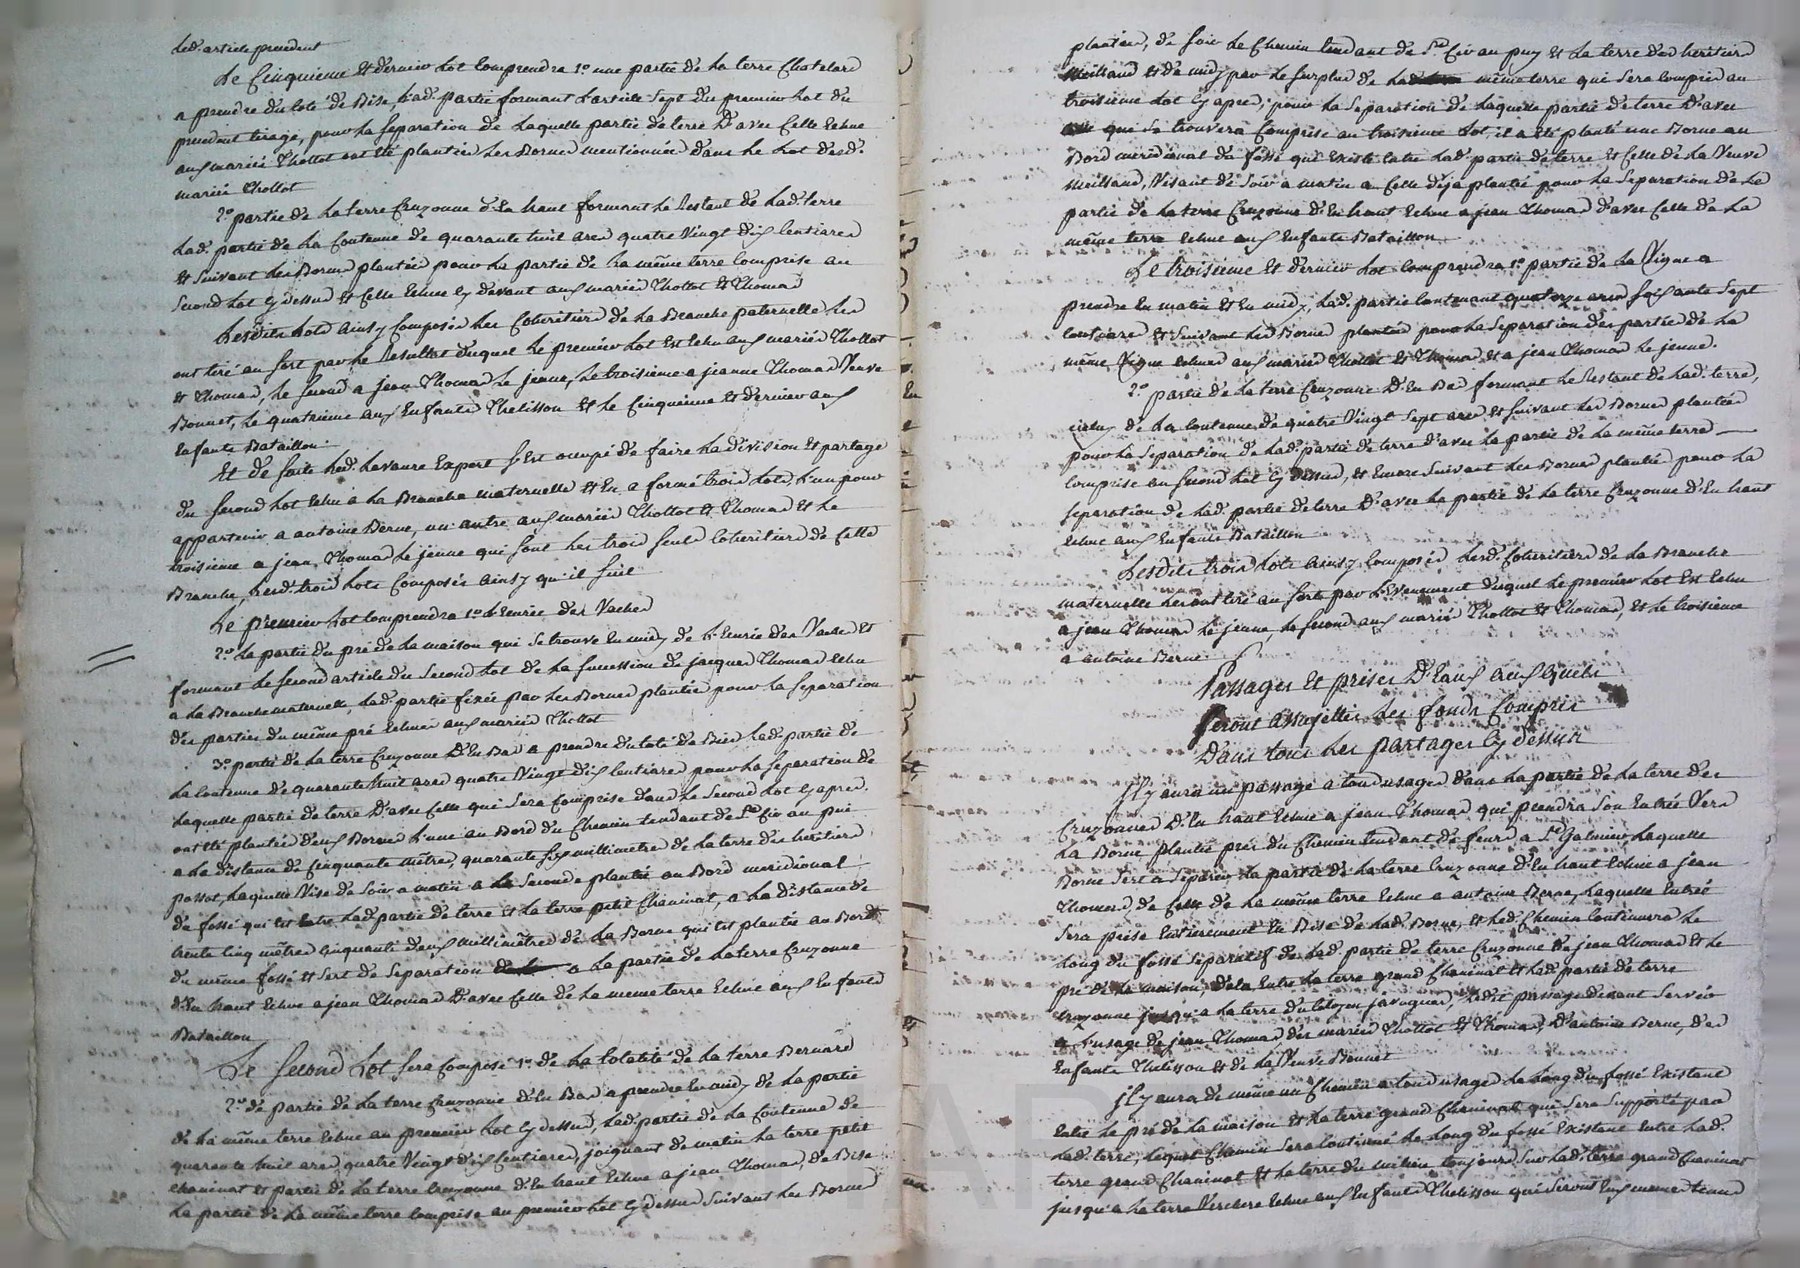 led. article precedent
Le Cinquieme et dernier lot comprendra 1o. une partie de la terre Chatelard
a prendre du coté de Bise, lad. partie formant l'article sept du premier lot du
precedent tirage, pour la separation de laquelle partie de terre d'avec celle echue
aux mariés Thollot ont été plantées les Bornes mentionnées dans le lot desd.
mariés Thollot
2o. partie de la terre Cruzonne d'en haut formant le Restant de lad. terre
lad. partie de la Contenue de quarante huit ares quatre Vingt dix Centiares
et Suivant les Bornes plantées pour la partie de la même terre comprise au
Second lot cy dessus et celle echue cy devant aux mariés Thollot et Thomas
Lesdits lots ainsy Composés les Coheritiers de la Branche paternelle les
ont tiré au sort par le Resultat duquel le premier lot est echu aux mariés Thollot
et Thomas, le second a jean Thomas le jeune, le troisieme a jeanne Thomas Veuve
Bonnet, le quatrieme aux Enfants Thelisson et le Cinquieme et dernier aux
Enfants Bataillon.
Et de suite led. Lavaure Expert s'est occupé de faire la division et partage
du second lot echu a la Branche maternelle et en a formé trois lots, l'un pour
appartenir a antoine Berne, un autre aux mariés Thollot et Thomas et le
troisieme a jean Thomas le jeune qui sont les trois seuls Coheritiers de cette
Branche, lesd. trois lots Composés ainsy qu'il suit
Le premier lot comprendra 1o. l'Eurée des Vaches
2o. la partie du pré de la maison qui se trouve en midy de l'Eurée des Vaches et
formant le second article du Second lot de la succession de jacques Thomas echu
a la Branche maternelle, lad. partie fixée par les Bornes plantées pour la separation
des parties du même pré echues aux mariés Thollot
3o. partie de la terre Cruzonne d'en Bas a prendre du coté de Bise lad. partie de
la Contenue de quarante huit ares quatre Vingt dix Centiares pour la separation de
laquelle partie de terre d'avec celle qui sera comprise dans le Second lot cy apres.
ont été plantées deux Bornes l'une au Bord du Chemin tendant de St. Cir au pui
a la distance de Cinquante mètres, quarante six millimetres de la terre des heritiers
passot, laquelle Vise de Soir a matin a la Seconde plantée au Bord meridional
du fossé qui est entre lad. partie de terre et la terre petit Chaninat, a la distance de
trente Cinq mètres Cinquante deux millimètres de la Borne qui est plantée au Bord
du même fossé et sert de separation a la partie de la terre Cruzonne
d'en haut echue a jean Thomas d'avec celle de la meme terre echue aux Enfants
Bataillon
Le second lot sera Composé 1o. de la totalité de la terre Bernard
2o. de partie de la terre Cruzonne d'en Bas a prendre en midy de la partie
de la même terre echue au premier lot cy dessus, lad. partie de la Contenue de
quarante huit ares quatre Vingt dix Centiares, joignant de matin la terre petit
Chaninat et partie de la terre Cruzonne d'en haut echue a jean Thomas, de Bise
la partie de la même terre comprise au premier lot cy dessus Suivant les Bornes
plantées, de soir le Chemin tendant de St. Cir au puy et la terre des heritiers
Meilland et de midy par le surplus de la même terre qui sera compris au
troisieme lot cy apres; pour la Separation de laquelle partie de terre d'avec
qui se trouvera Comprise au troisieme lot, il a été planté une Borne au
Bord meridional du fossé qui existe entre lad. partie de terre et celle de la Veuve
Meilland, Visant de Soir a matin a celle deja plantée pour la Separation de la
partie de la terre Cruzonne d'en haut echue a jean Thomas d'avec celle de la
même terre echue aux Enfants Bataillon
Le troisieme et dernier lot comprendra 1o. partie de la Vigne a
prendre en matin et en midy, lad. partie contenant quatorze ares soixante sept
Centiares et Suivant les Bornes plantées pour la Separation des parties de la
même Vigne echues aux mariés Thollot et Thomas et a jean Thomas le jeune.
2o. partie de la terre Cruzonne d'en Bas formant le Restant de lad. terre,
de la Contenue de quatre Vingt Sept ares et suivant les Bornes plantées
pour la Separation de lad. partie de terre d'avec la partie de la même terre
comprise au second lot cy dessus, et encore suivant les Bornes plantées pour la
separation de lad. partie de terre d'avec la partie de la terre Cruzonne d'en haut
echue aux Enfants Bataillon
Lesdits trois lots ainsy Composés lesd. Coheritiers de la Branche
maternelle les ont tiré au sort par l'Evenement duquel le premier lot est echu
a jean Thomas le jeune, le second aux mariés Thollot et Thomas, et le troisieme
a antoine Berne
Passages et prises d'eaux auxquels
seront assujettis les fonds Compris
Dans tous les partages cy dessus
Il y aura un passage a tous usages dans la partie de la terre des
Cruzonnes d'en haut echue a jean Thomas qui prendra son Entrée Vers
la Borne plantée près du Chemin tendant de feurs a St. Galmier, laquelle
Borne sert a separer la partie de la terre Cruzonne d'en haut echue a jean
Thomas de celle de la même terre echue a antoine Berne, laquelle Entrée
sera prise Entierement en Bise de lad. Borne, et led. Chemin Continuera le
long du fossé Separatif de lad. partie de terre Cruzonne de jean Thomas et le
pré de la maison, de la entre la terre grand Chaninat et lad. partie de terre
Cruzonne jusqu'a la terre du Citoyen javoguer, ledit passage devant servir
a l'usage de jean Thomas des mariés Thollot et Thomas, d'antoine Berne, des
Enfants Thelisson et de la Veuve Bonnet
Il y aura de même un Chemin a tous usages le long du fossé Existant
Entre le pré de la maison et la terre grand Chaninat qui sera Supporté par
lad. terre, lequel Chemin sera Continué le long du fossé Existant entre lad.
terre grand Chaninat et la terre du milieu toujours sur lad. terre grand Chaninat
jusqu'a la terre Verchere echue aux Enfants Thelisson qui seront en même tems